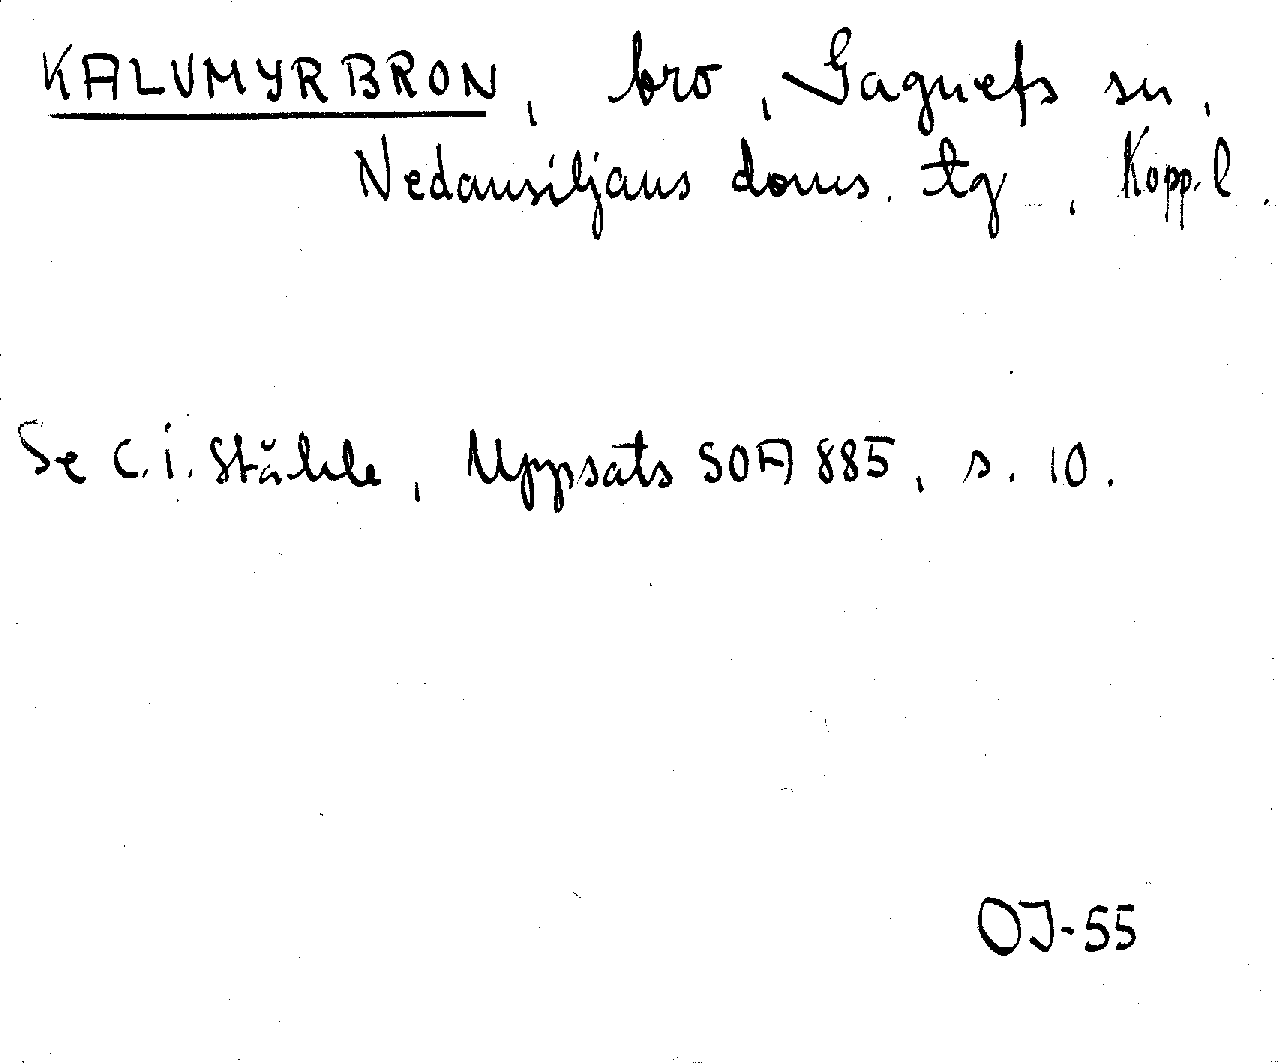 KALVMYRBRON, bro, Gagnefs sn,
Nedansiljans doms. tg, Kopp. l.
Se C. I. Ståhle, Uppsats SOA 885, s. 10.
OJ-55